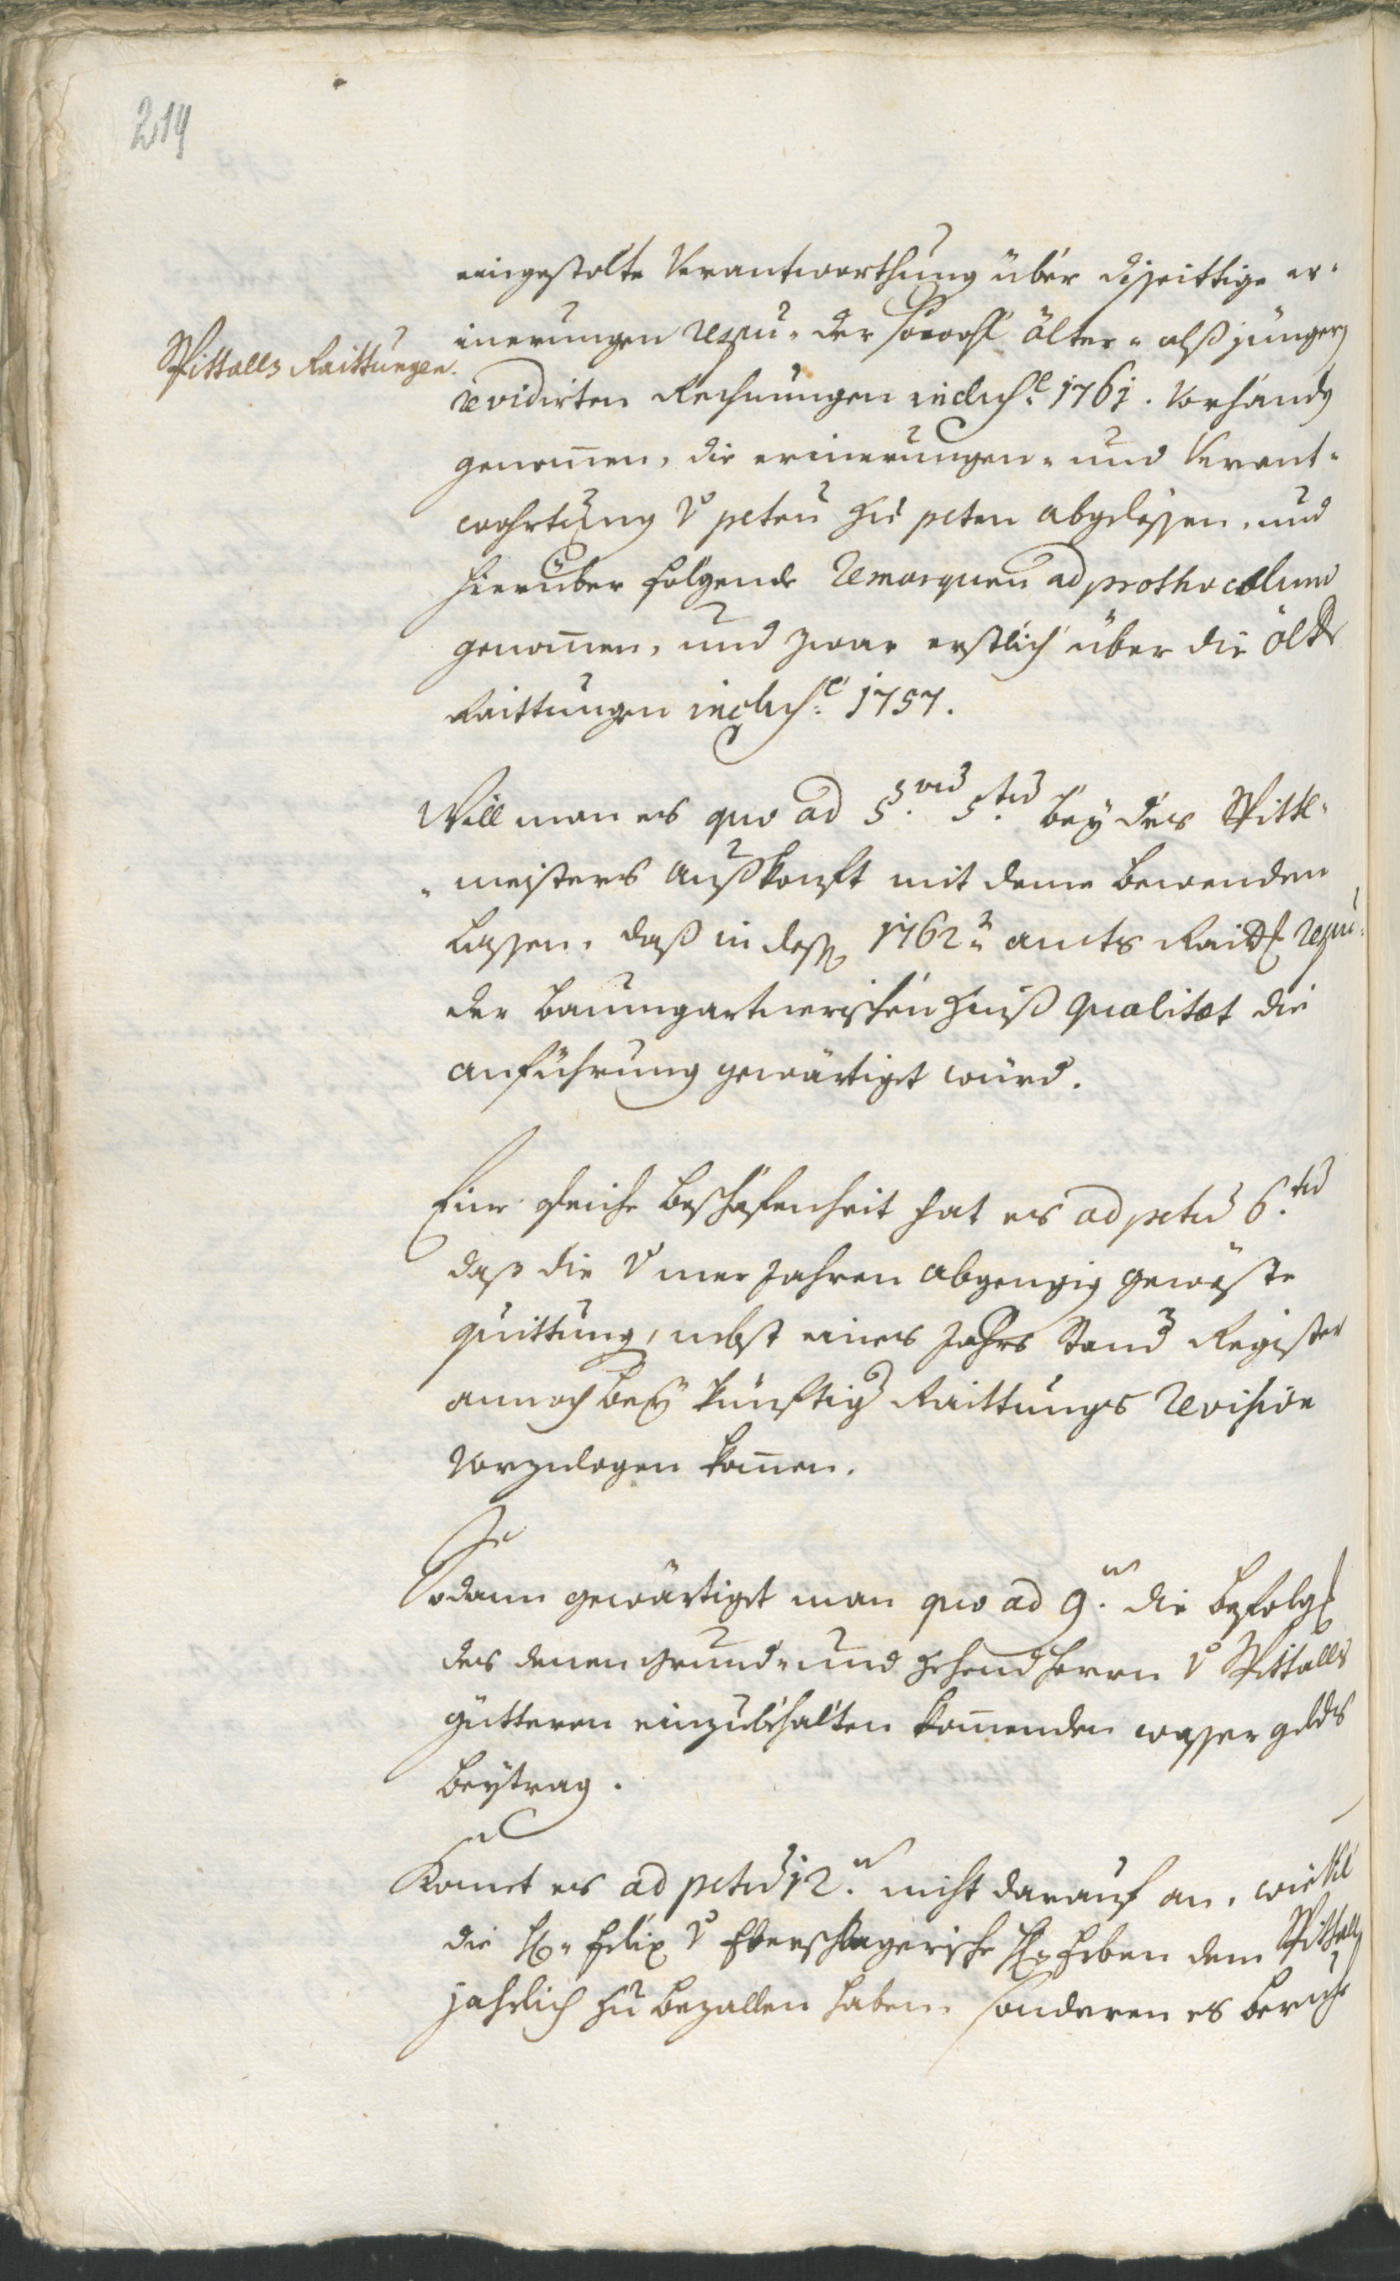 214
Spittalls Raittungen.
eingestolte Verantworthung über disseittige er-
inerungen respu. der sowohl älter- alß jüngers
revidirten Rechnungen inclus.e 1761. vorhandt
genomen, die erinerungen- und Verant-
wohrtung v pctu zu pcten abgelesen, und
hierüber folgende Remarquen ad prothocollum
genomen, und zwar erstlich über die ölter
Raittungen inclus.e 1757.
Will man es quo ad 5. 5.tu bey des Spittl-
meisters Außkonfft mit deme bewenden
lassen, daß in dess 1762n amts Raitt
der Baumgartnerischen Hauß qualitet die
anführung gewärtiget würd.
Eine gleiche beschafenheit hat es ad pctu 6.tu
daß die v mer Jahren abgengig geweste
quittung, nebst eines Jahrs Stand Register
annoch bey künftig Raittungs revision
vorzulegen komen.
Sodann gewärtiget man quo ad 9. die befolg
des denen Grund- und Zehend herrn v Spittalls
güttern einzubehalten komenden wasser gelds
beytrag.
Komet es ad pctu 12. nicht darauf an, wievill
die H. Felix v Eberschlagerische H. Erben dem Spittall
jahrlich zu bezallen haben sonderen es beruhe